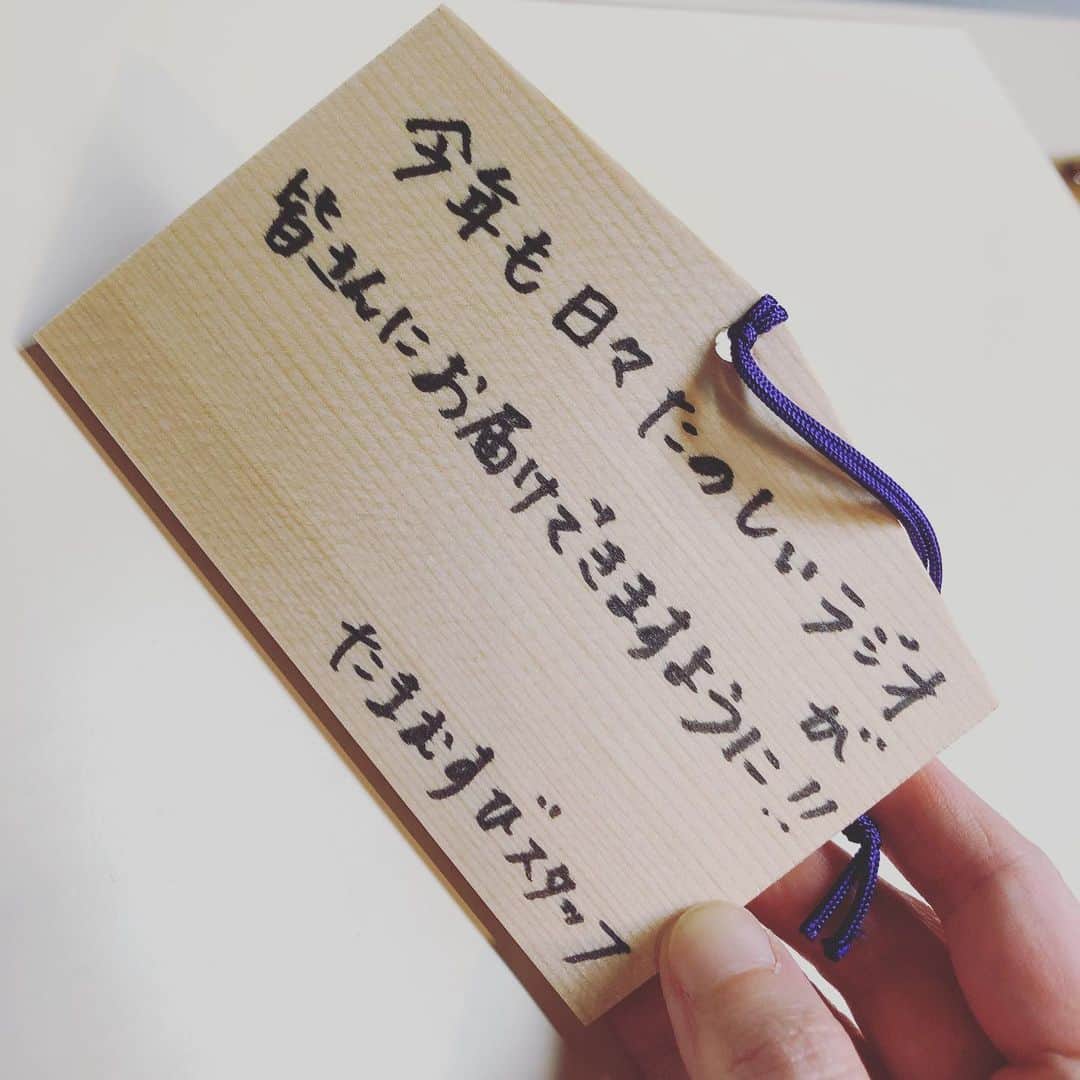 今年も日々たのしいラジオが
皆さんにお届けできますように!!
たまむすびスタッフ